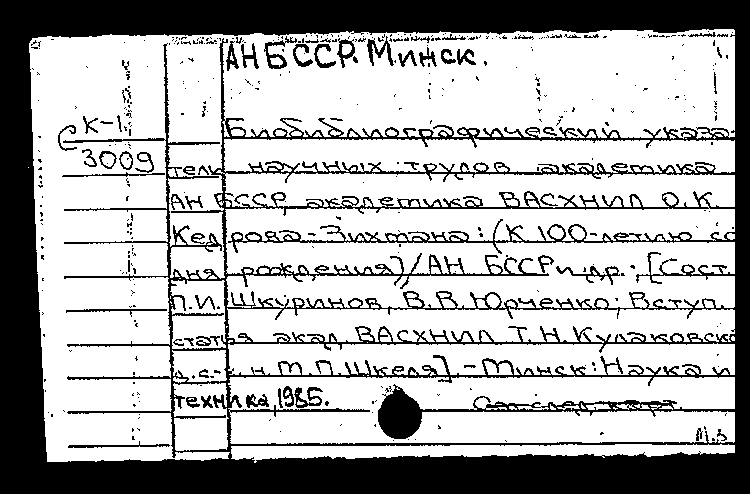 АН БССР. Минск.
К-1
3009
Библиографический указа-
тель научных трудов академика
АН БССР, академика ВАСХНИЛ О.К.
Кедрова-Зихмана: (К 100-летию со
дня рождения)/АН БССР и др.; [Сост.
П.И. Шкуринов, В.В. Юрченко; Вступ.
статья акад. ВАСХНИЛ Т.Н. Кулаковско
д.с.-х.н. Т.П. Шкеля]. - Минск: Наука и
техника, 1985.
См. след. карт.